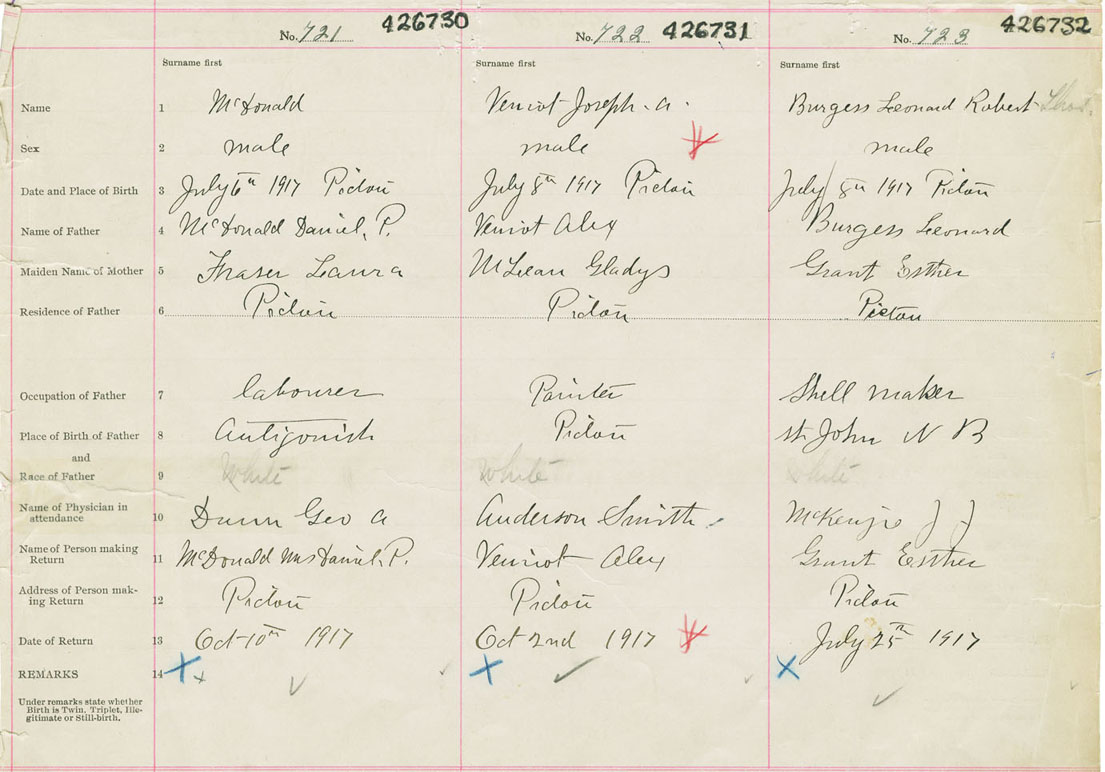 No. 721 426730 No. 722 426731 No. 723 426732
Surname first Surname first Surname first
Name 1 McDonald Veniot Joseph. A. Burgess Leonard Robert
Sex 2 male male male
Date and Place of Birth 3 July 6th 1917 Pictou July 8th 1917 Pictou July 8th 1917 Pictou
Name of Father 4 McDonald Daniel, P. Veniot Alex Burgess Leonard
Maiden Name of Mother 5 Fraser Laura McLean Gladys Grant Esther
Residence of Father 6 Pictou Pictou Pictou
Occupation of Father 7 labourer Painter Shell maker
Place of Birth of Father 8 Antigonish Pictou St John N B
and
Race of Father 9 White White White
Name of Physician in
attendance 10 Dunn Geo A Anderson Smith McKenzie J J
Name of Person making
Return 11 McDonald Mrs Daniel, P. Veniot Alex Grant Esther
Address of Person mak-
ing Return 12 Pictou Pictou Pictou
Date of Return 13 Oct 10th 1917 Oct 2nd 1917 July 25th 1917
REMARKS 14
Under remarks state whether
Birth is Twin. Triplet, Ille-
gitimate or Still-birth.